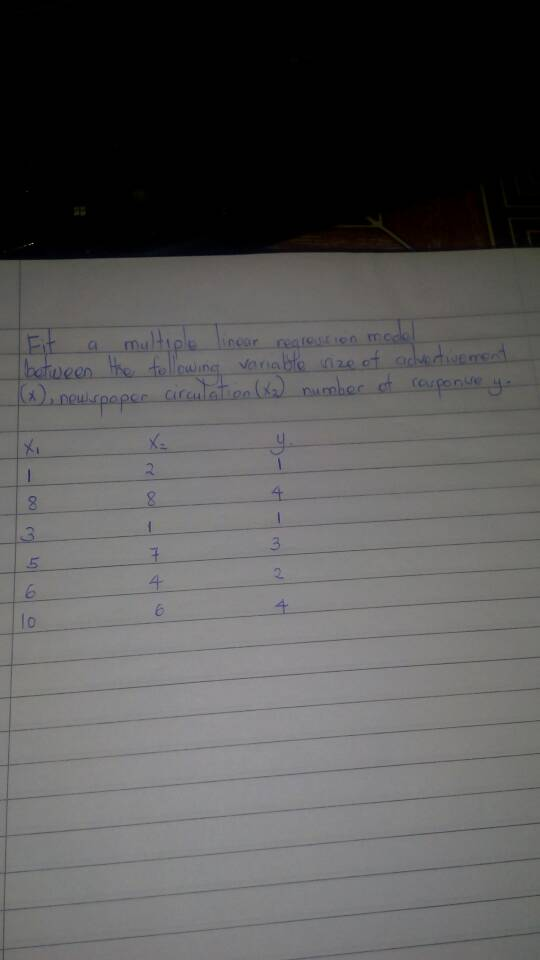 Fit a multiple linear regression model
between the following variable size of advertisement
(x), newspaper circulation (x₂) number of response y.
X₁ X₂ y.
1 2 1
8 8 4
3 1 1
5 7 3
6 4 2
10 6 4